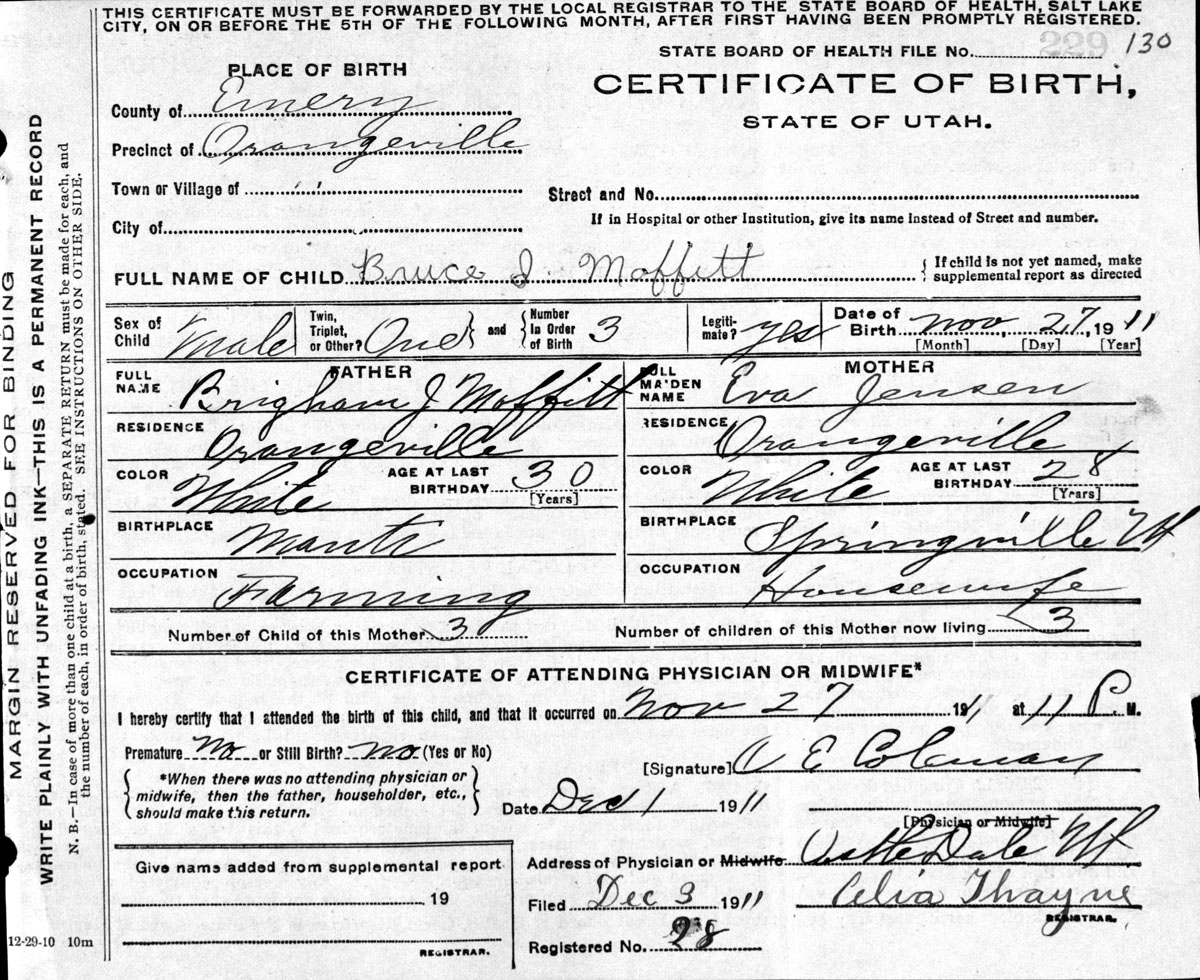 THIS CERTIFICATE MUST BE FORWARDED BY THE LOCAL REGISTRAR TO THE STATE BOARD OF HEALTH, SALT LAKE
CITY, ON OR BEFORE THE 5TH OF THE FOLLOWING MONTH, AFTER FIRST HAVING BEEN PROMPTLY REGISTERED.
229
STATE BOARD OF HEALTH FILE No. 130
PLACE OF BIRTH
CERTIFICATE OF BIRTH,
STATE OF UTAH.
County of Emery
Precinct of Orangeville
Town or Village of " "
Street and No.
City of
If in Hospital or other Institution, give its name instead of Street and number.
FULL NAME OF CHILD Bruce J. Moffitt { If child is not yet named, make
supplemental report as directed
Sex of Child Male
Twin, Triplet, or Other? One and { Number In Order of Birth 3
Legiti-mate? yes
Date of Birth Nov 27, 1911
[Month] [Day] [Year]
FATHER
FULL NAME Brigham J Moffitt
RESIDENCE Orangeville
COLOR White AGE AT LAST BIRTHDAY 30
[Years]
BIRTHPLACE Manti
OCCUPATION Farming
MOTHER
FULL MAIDEN NAME Eva Jensen
RESIDENCE Orangeville
COLOR White AGE AT LAST BIRTHDAY 28
[Years]
BIRTHPLACE Springville Ut
OCCUPATION Housewife
Number of Child of this Mother 3 Number of children of this Mother now living 3
CERTIFICATE OF ATTENDING PHYSICIAN OR MIDWIFE*
I hereby certify that I attended the birth of this child, and that it occurred on Nov 27 1911 at 11 P. M.
Premature No or Still Birth? No (Yes or No)
{ *When there was no attending physician or
midwife, then the father, householder, etc.,
should make this return. }
[Signature] E Coleman
Date Dec 1 1911
[Physician or Midwife]
Give name added from supplemental report
19
REGISTRAR.
Address of Physician or Midwife Castle Dale Ut
Filed Dec 3 1911 Celia Thayne
REGISTRAR.
Registered No. 28
12-29-10 10m
MARGIN RESERVED FOR BINDING
WRITE PLAINLY WITH UNFADING INK—THIS IS A PERMANENT RECORD
N. B.—In case of more than one child at a birth, a SEPARATE RETURN must be made for each, and
the number of each, in order of birth, stated. SEE INSTRUCTIONS ON OTHER SIDE.